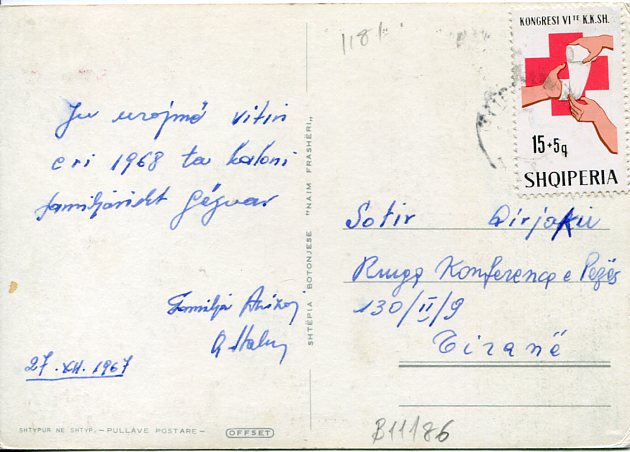 1181
KONGRESI VI TE K.K.SH.
15+5q
SHQIPERIA
Ju urojmë vitin
e ri 1968 ta kaloni
familjarisht gëzuar
Familja
27.XII.1967
SHTËPIA BOTONJESE "NAIM FRASHËRI"
Sotir Qirjaku
Rruga Konferenca e Pezës
130/II/9
Tiranë
SHTYPUR NE SHTYP. — PULLAVE POSTARE — OFFSET
B11186